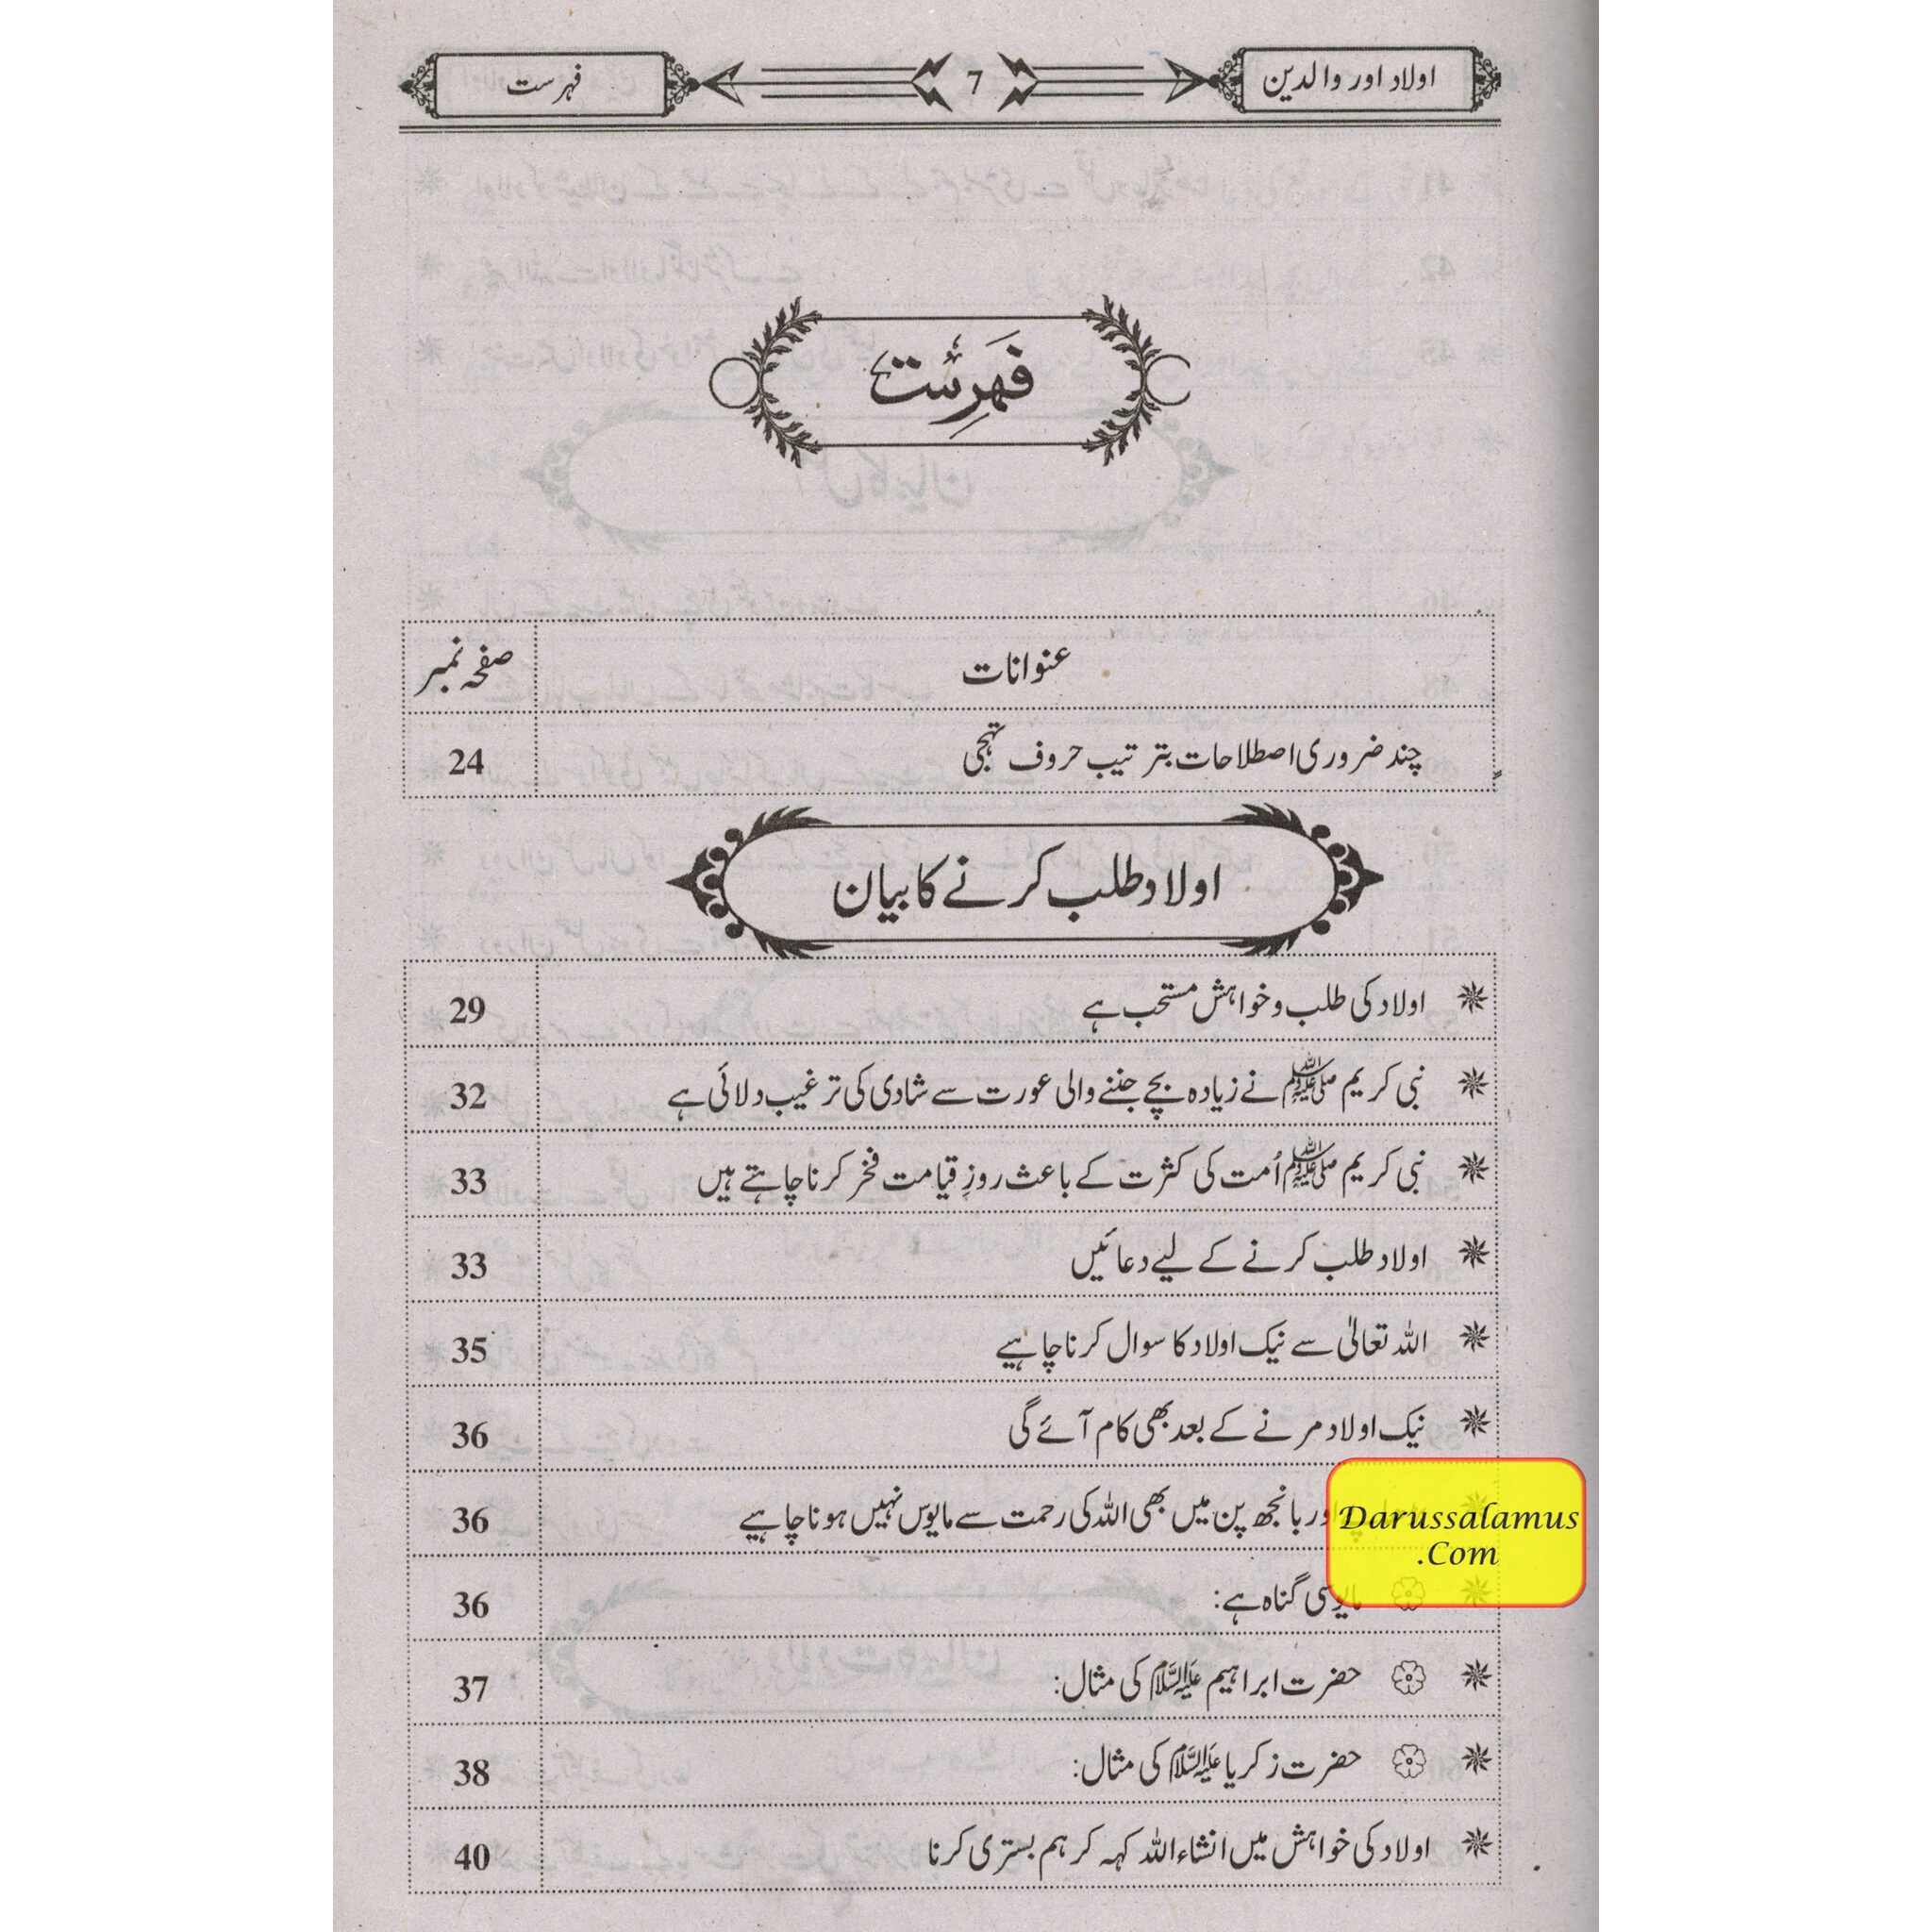 اولاد اور والدین
7
فہرست
فَہرِسْت
عنوانات
صفحہ نمبر
چند ضروری اصطلاحات بترتیب حروف تہجی
24
اولاد طلب کرنے کا بیان
اولاد کی طلب و خواہش مستحب ہے
29
نبی کریم ﷺ نے زیادہ بچے جننے والی عورت سے شادی کی ترغیب دلائی ہے
32
نبی کریم ﷺ اُمت کی کثرت کے باعث روزِ قیامت فخر کرنا چاہتے ہیں
33
اولاد طلب کرنے کے لیے دعائیں
33
اللہ تعالیٰ سے نیک اولاد کا سوال کرنا چاہیے
35
نیک اولاد مرنے کے بعد بھی کام آئے گی
36
اور بانجھ پن میں بھی اللہ کی رحمت سے مایوس نہیں ہونا چاہیے
36
Darussalamus
.Com
مایوسی گناہ ہے:
36
حضرت ابراہیم علیہ السلام کی مثال:
37
حضرت زکریا علیہ السلام کی مثال:
38
اولاد کی خواہش میں انشاء اللہ کہہ کر ہم بستری کرنا
40